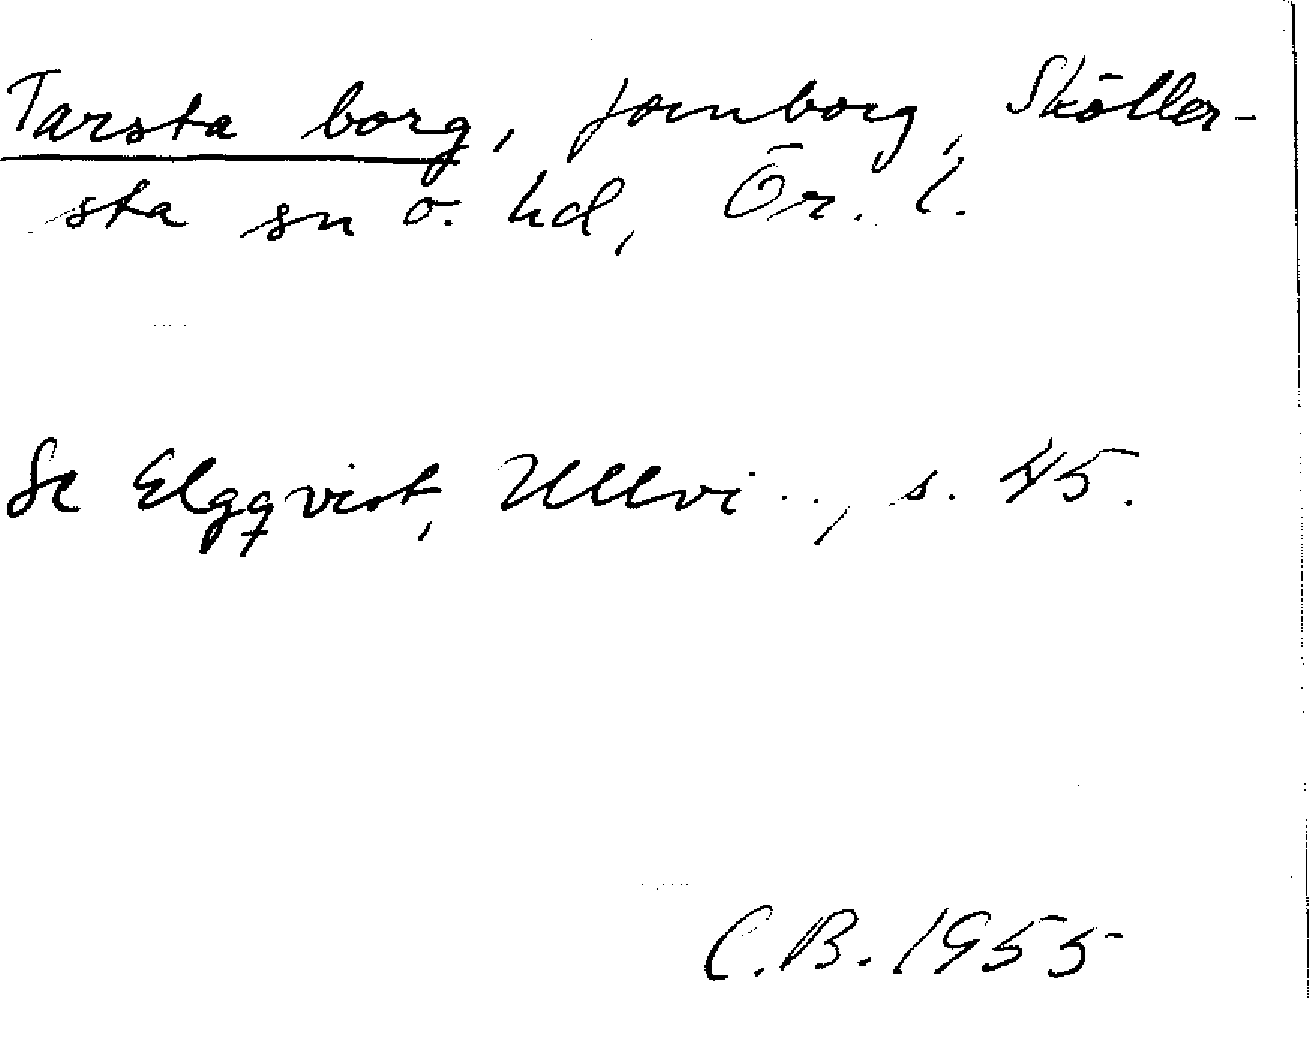 Tarsta borg, fornborg, Sköller-
sta sn o. hd, Ör. l.
Se Elgqvist, Ullvi..., s. 45.
C.B. 1955